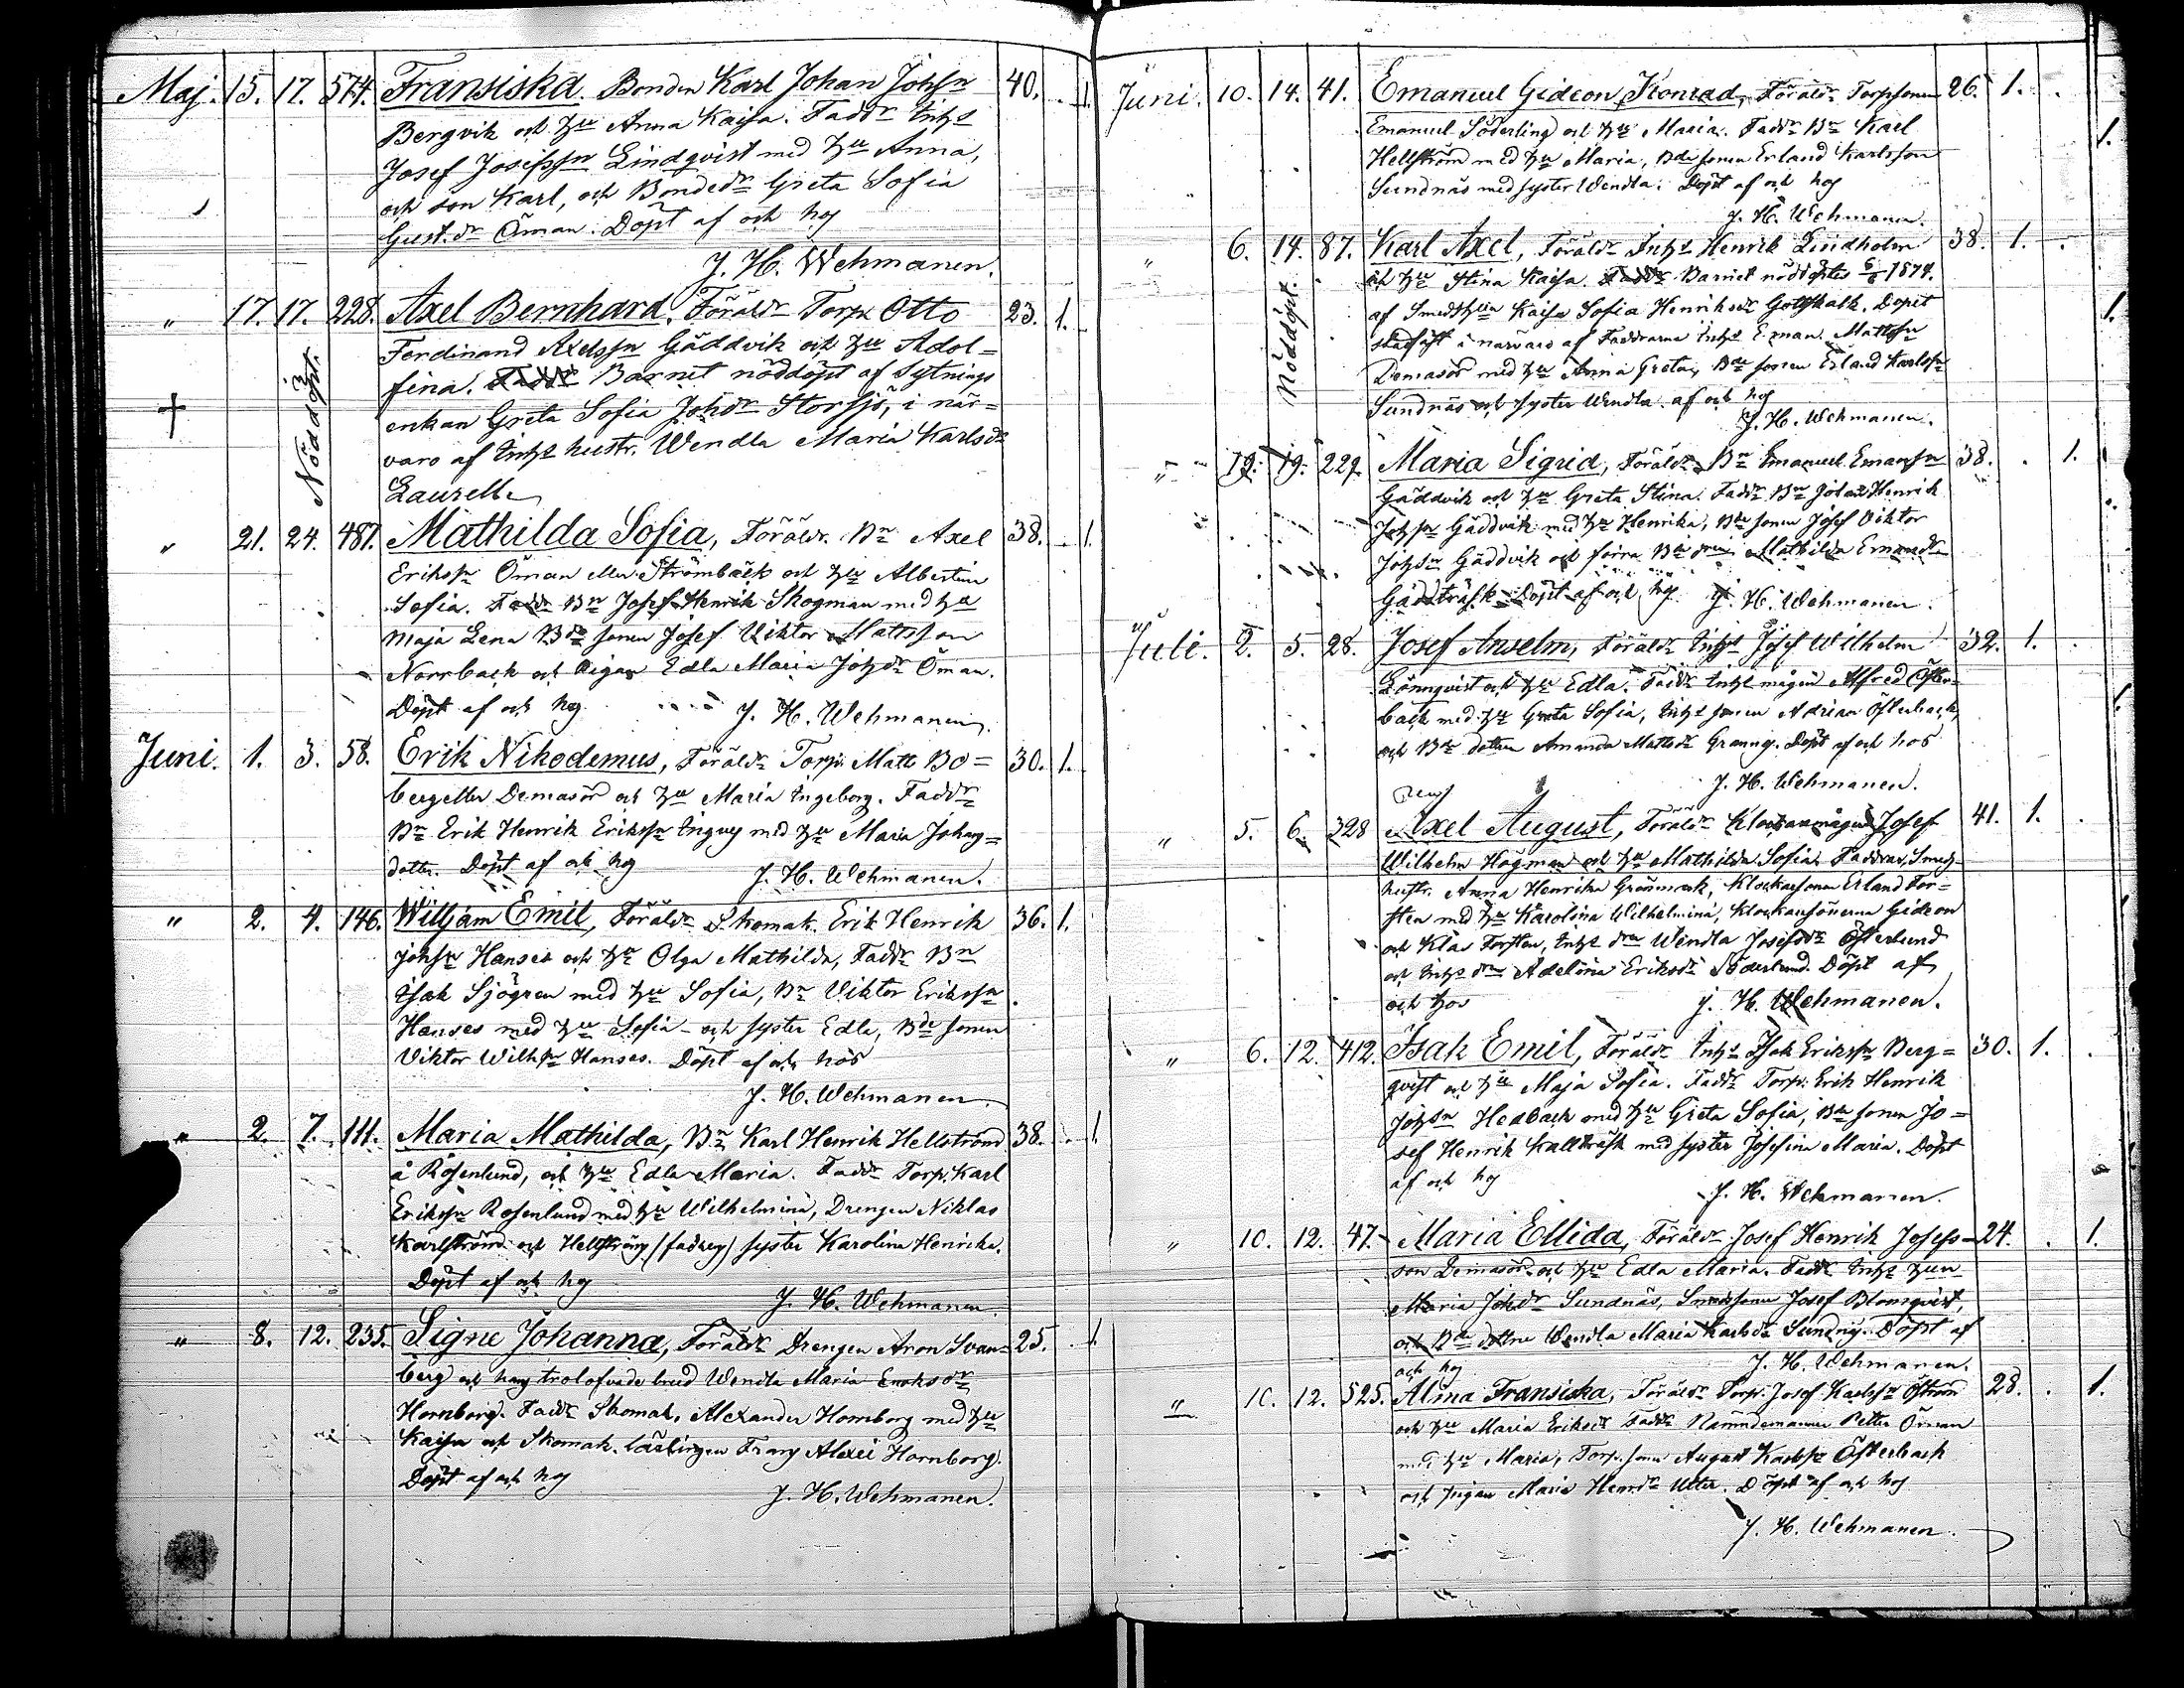 Maj. 15. 17. 574. Fransiska. Bonden Karl Johan Johsn 40. . 1.
Bergvik och hu Anna Kaisa. Faddr Inhs
Josef Josefssn Lindqvist med hu Anna,
och son Karl, och Bondedr Greta Sofia
Gust.dr Öman. Döpt af och hos
J. H. Wehmanen.
" 17. 17. 228. Axel Bernhard. Föräldr Torp. Otto 23. 1.
Nöddöpt.
Ferdinand Axelssn Gäddvik och hu Adol=
fina. Faddr Barnet nöddöpt af Sytnings
enkan Greta Sofia Johdr Storsjö, i när=
varo af Inhs hustr. Wendla Maria Karlsdr
Laurell
" 21. 24. 487. Mathilda Sofia, Föräldr. Bn Axel 38. . 1.
Erikssn Öman eller Strömbäck och hu Albertina
Sofia. Faddr Bn Josef Henrik Skogman med hu
Maja Lena Bde sonen Josef Viktor Mattsson
Norrback och Pigan Edla Maria Johdr Öman.
Döpt af och hos J. H. Wehmanen.
Juni. 1. 3. 58. Erik Nikodemus, Föräldr Torp. Matts Bo= 30. 1.
berg eller Demasör och hu Maria Ingeborg. Faddr
Bn Erik Henrik Erikssn Ingves med hu Maria Johans=
dotter. Döpt af och hos J. H. Wehmanen.
" 2. 4. 146. Wiljam Emil, Föräldr Skomak. Erik Henrik 36. 1.
Johssn Hanses och hu Olga Mathilda, Faddr Bn
Isak Sjögren med hu Sofia, Bn Viktor Erikssn
Hanses med hu Sofia och syster Edla, Bde sonen
Viktor Wilhsn Hanses. Döpt af och hos
J. H. Wehmanen.
" 2. 7. 111. Maria Mathilda, Bn Karl Henrik Hellström 38. . 1.
å Rosenlund, och hu Edla Maria. Faddr Torp. Karl
Erikssn Rosenlund med hu Wilhelmina, Drengen Niklas
Karlström och Hellströms (fadrens) syster Karolina Henrika.
Döpt af och hos
J. H. Wehmanen.
" 8. 12. 235. Signe Johanna, Föräldr Drengen Aron Svan= 25. . 1.
berg och hans trolofvade brud Wendla Maria Eriksdr
Hornborg. Faddr Skomak. Alexander Hornborg med hu
Kaisa och Skomak. lärlingen Frans Alexei Hornborg.
Döpt af och hos
J. H. Wehmanen.
Juni. 10. 14. 41. Emanuel Gideon Konrad, Föräldr Torpsonen 26. 1. .
Emanuel Söderling och hu Maria. Faddr Bn Karl
Hellström med hu Maria, Bde sonen Erland Karlsson
Sundnäs med syster Wendla. Döpt af och hos
J. H. Wehmanen.
" 6. 14. 87. Karl Axel, Föräldr Inhs Henrik Lindholm 38. 1. .
Nöddöpt.
och hu Stina Kaisa. Faddr Barnet nöddöptes 6/6 1874.
af Smedshu Kaisa Sofia Henriksdr Gottskalk. Dopet
stadfäst i närvaro af Faddrarna Inhs Eman. Mattssn
Demasör med hu Anna Greta, Bde sonen Erland Karlssn
Sundnäs och syster Wendla. af och hos
J. H. Wehmanen.
" 19. 19. 229. Maria Sigrid, Föräldr Bn Emanuel Emanssn 38. . 1.
Gäddvik och hu Greta Stina. Faddr Bn Johan Henrik
Johssn Gäddvik med hu Henrika, Bde sonen Josef Viktor
Johssn Gäddvik och förra Mathilda Emansdr
Gäddträsk. Döpt af och hos J. H. Wehmanen.
Juli. 2. 5. 28. Josef Anselm, Föräldr Inhs Josef Wilhelm 32. 1. .
Lönnqvist och hu Edla. Faddr Inhs mågen Alfred Öster=
back med hu Greta Sofia, Inhs sonen Adrian Österback,
och Bde dottern Amanda Mattsdr Granng. Döpt af och hos
J. H. Wehmanen.
" 5. 6. 328 Axel August, Föräldr Klockaremågen Josef 41. 1. .
Wilhelm Högman och hu Mathilda Sofia. Faddrar, Smeds
hustr. Anna Henrika Grönmark, Klockarsonen Erland For=
sten med hu Karolina Wilhelmina, Klockarsönerna Gideon
och Klas Forsten, Inhs dren Wendla Josefsdr Österlund
och Inhs drn Adelina Eriksdr Söderlund. Döpt af
och hos J. H. Wehmanen.
" 6. 12. 412. Isak Emil, Föräldr Inhs Isak Erikssn Berg= 30. 1. .
qvist och hu Maja Sofia. Faddr Torp. Erik Henrik
Johssn Hedback med hu Greta Sofia, Bde sonen Jo=
sef Henrik Kallträsk med syster Josefina Maria. Döpt
af och hos
J. H. Wehmanen.
" 10. 12. 47. Maria Ellida, Föräldr Josef Henrik Josefs= 24. . 1.
son Demasör och hu Edla Maria. Faddr Inhs hun
Maria Johdr Sundnäs, Smedssonen Josef Blomqvist,
och Bde dottren Wendla Maria Karlsdr Sundnäs. Döpt af
och hos J. H. Wehmanen.
" 10. 12. 525. Alma Fransiska, Föräldr Torp. Josef Karlssn Öström 28. . 1.
och hu Maria Eriksdr Faddr Nämndemannen Petter Öman
med hu Maria, Torp. sonen August Karlssn Österback
och pigan Maria Henrdr Utter. Döpt af och hos
J. H. Wehmanen.